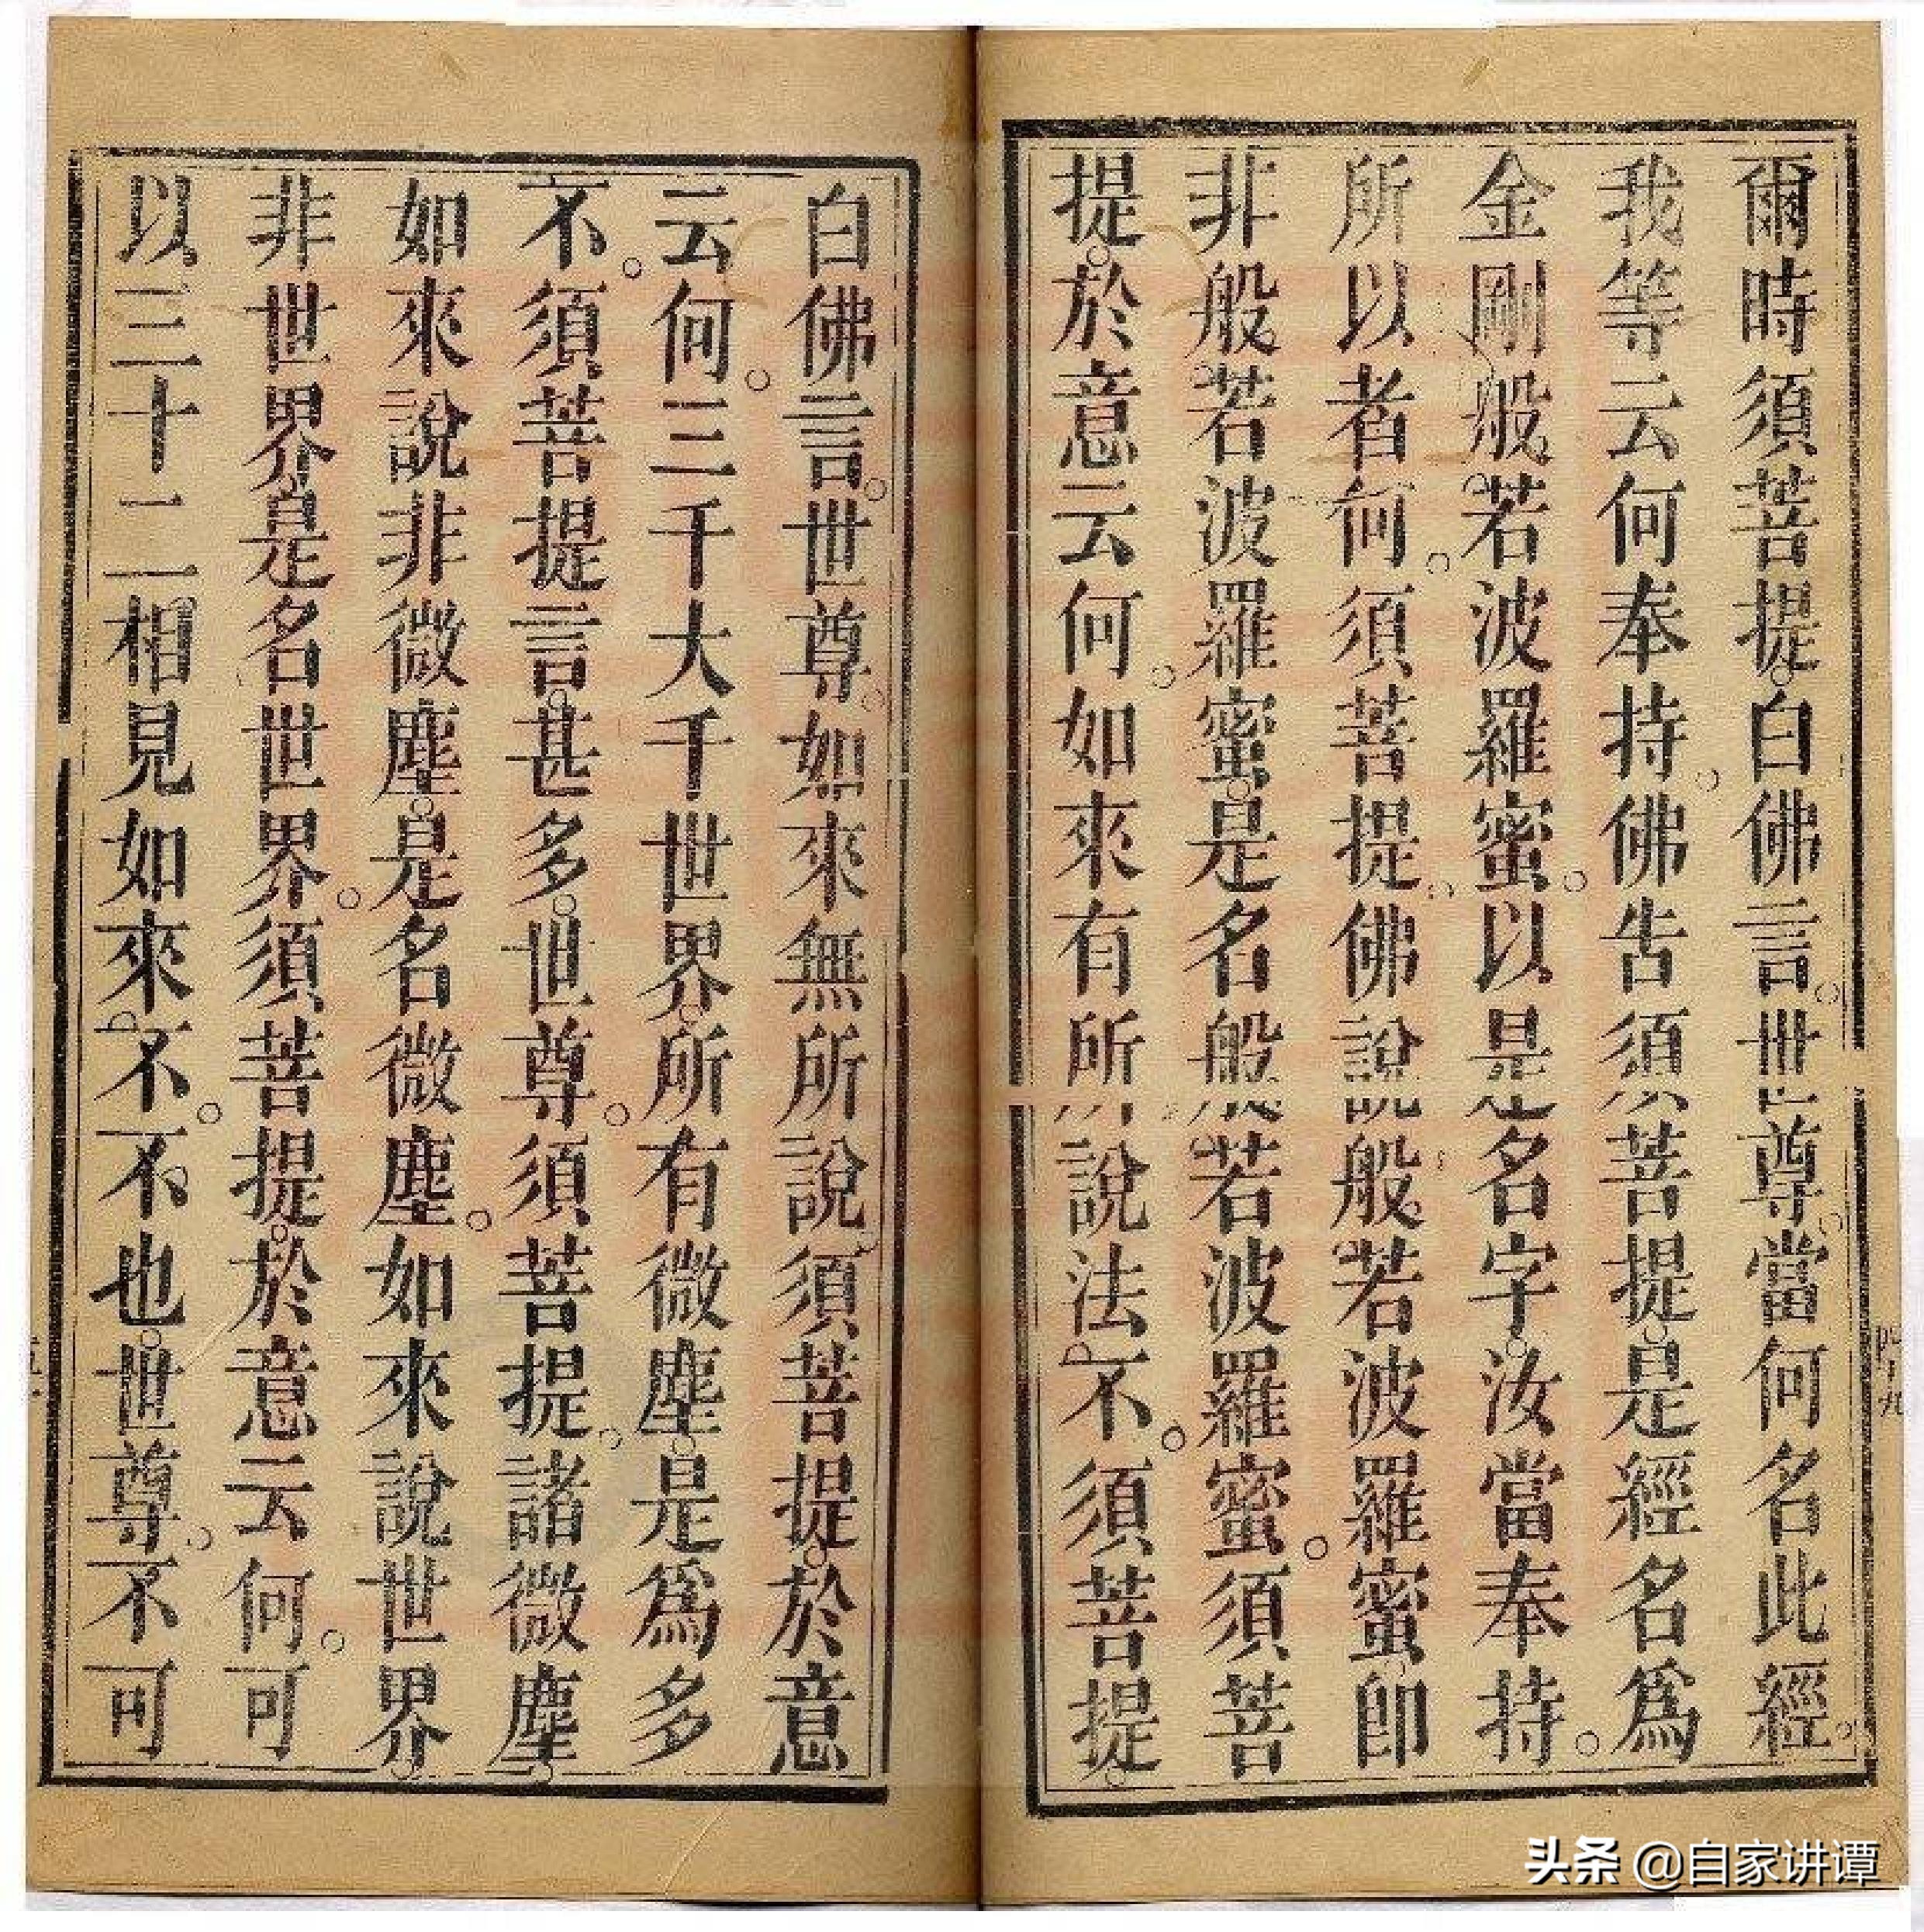 爾時須菩提。白佛言。世尊。當何名此經。
我等云何奉持。佛告須菩提。是經名爲
金剛般若波羅蜜。以是名字。汝當奉持。
所以者何。須菩提。佛說般若波羅蜜。卽
非般若波羅蜜。是名般若波羅蜜。須菩
提。於意云何。如來有所說法不。須菩提。
白佛言。世尊。如來無所說。須菩提。於意
云何。三千大千世界。所有微塵。是爲多
不。須菩提言。甚多。世尊。須菩提。諸微塵。
如來說非微塵。是名微塵。如來說世界。
非世界。是名世界。須菩提。於意云何。可
以三十二相見如來不。不也。世尊。不可
四十九
头条 @自家讲谭